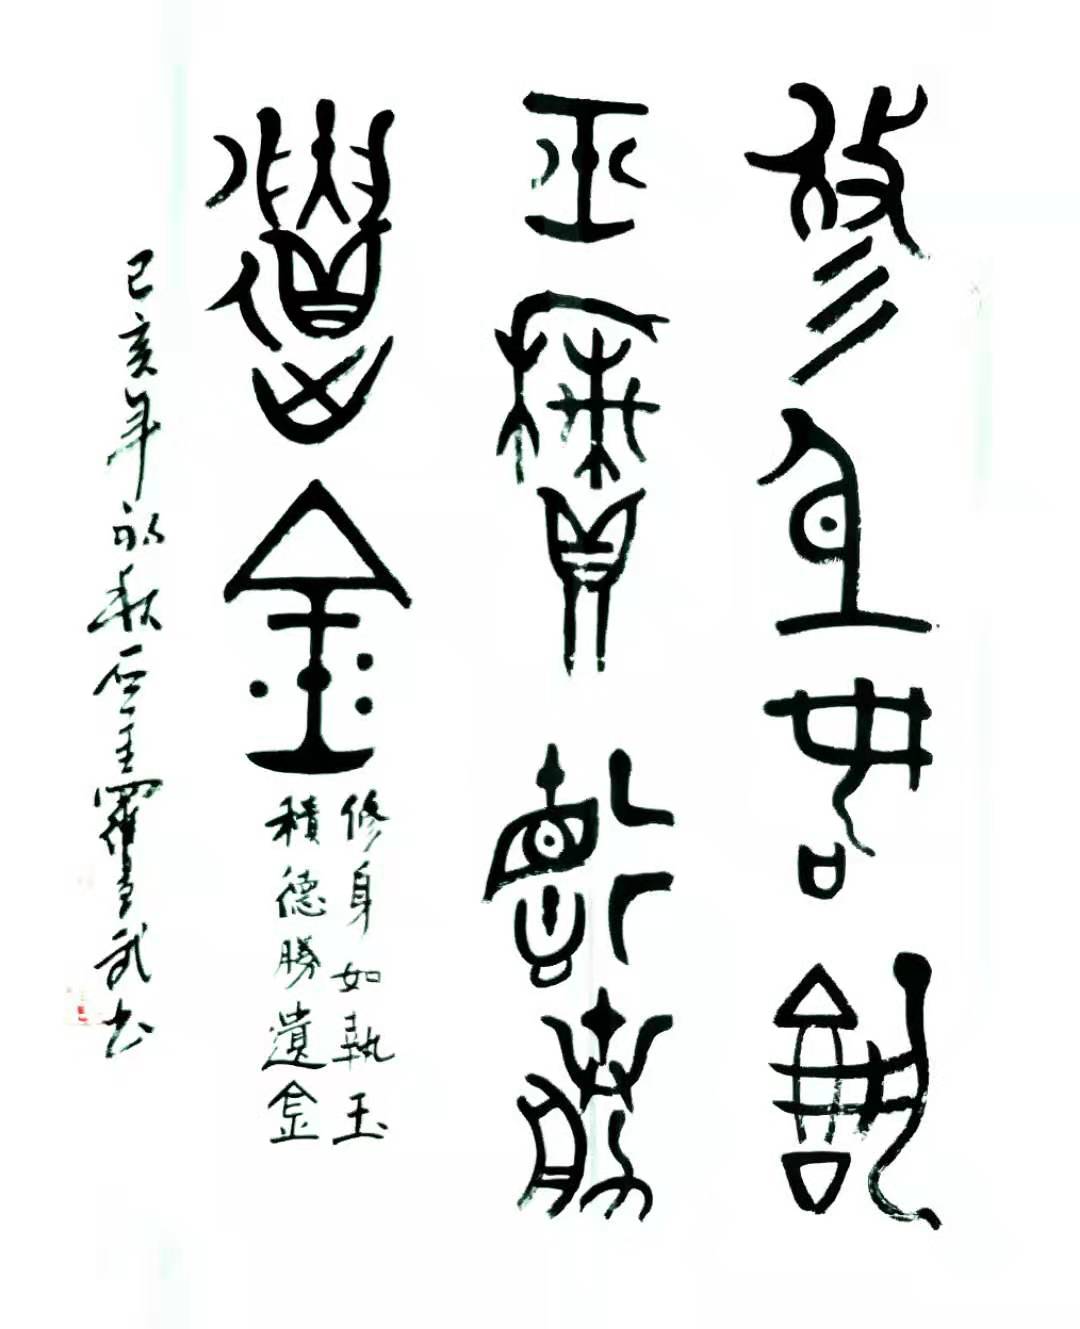 修身如執
玉積德勝
遺金
修身如執玉
積德勝遺金
己亥年初秋羅武书